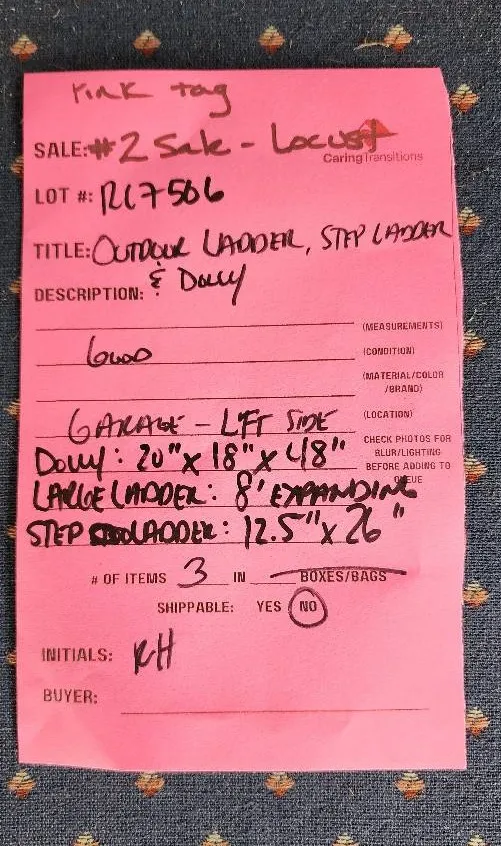 Pink tag
SALE: #2 Sale - Locust
CaringTransitions
LOT #: RC7506
TITLE: OUTDOOR LADDER, STEP LADDER
& DOLLY
DESCRIPTION:
(MEASUREMENTS)
GOOD (CONDITION)
(MATERIAL/COLOR
/BRAND)
GARAGE - LEFT SIDE (LOCATION)
CHECK PHOTOS FOR
BLUR/LIGHTING
BEFORE ADDING TO
QUEUE
DOLLY: 20" X 18" X 48"
LARGE LADDER: 8' EXPANDING
STEP LADDER: 12.5" X 26"
# OF ITEMS 3 IN BOXES/BAGS
SHIPPABLE: YES NO
INITIALS: RH
BUYER: